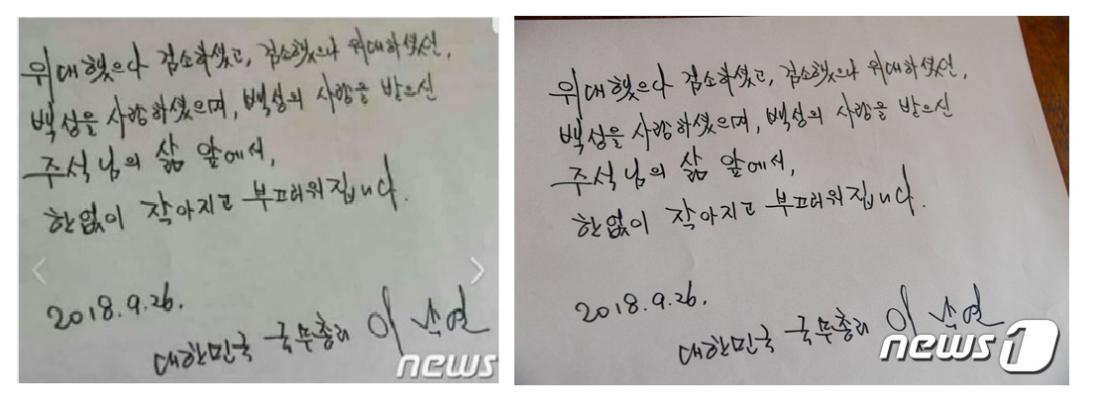 위대했으나 검소하셨고, 검소했으나 위대하셨던,
백성을 사랑하셨으며, 백성의 사랑을 받으신
주석님의 삶 앞에서,
한없이 작아지고 부끄러워집니다.
2018.9.26.
대한민국 국무총리 이낙연
news
위대했으나 검소하셨고, 검소했으나 위대하셨던,
백성을 사랑하셨으며, 백성의 사랑을 받으신
주석님의 삶 앞에서,
한없이 작아지고 부끄러워집니다.
2018.9.26.
대한민국 국무총리 이낙연
news1